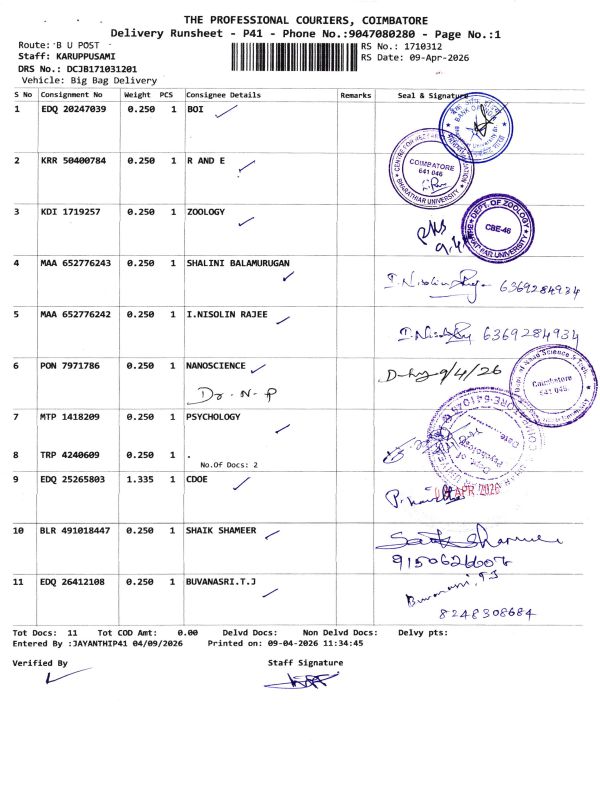 THE PROFESSIONAL COURIERS, COIMBATORE
Delivery Runsheet - P41 - Phone No.:9047080280 - Page No.:1
Route: B U POST
RS No.: 1710312
Staff: KARUPPUSAMI
RS Date: 09-Apr-2026
DRS No.: DCJB171031201
Vehicle: Big Bag Delivery
S No Consignment No Weight PCS Consignee Details Remarks Seal & Signature
1 EDQ 20247039 0.250 1 BOI
2 KRR 50400784 0.250 1 R AND E
COIMBATORE
641 046
BHARATHIAR UNIVERSITY
3 KDI 1719257 0.250 1 ZOOLOGY
DEPT. OF ZOOLOGY
CBE-46
4 MAA 652776243 0.250 1 SHALINI BALAMURUGAN
I.Nisolin 6369284934
5 MAA 652776242 0.250 1 I.NISOLIN RAJEE
6369284934
6 PON 7971786 0.250 1 NANOSCIENCE
9/4/26
Dr. N. P
Coimbatore
641 046
7 MTP 1418209 0.250 1 PSYCHOLOGY
8 TRP 4240609 0.250 1 .
No.Of Docs: 2
9 EDQ 25265803 1.335 1 CDOE
APR 2026
10 BLR 491018447 0.250 1 SHAIK SHAMEER
11 EDQ 26412108 0.250 1 BUVANASRI.T.J
Buvanasri.T.J
8248308684
Tot Docs: 11 Tot COD Amt: 0.00 Delvd Docs: Non Delvd Docs: Delvy pts:
Entered By :JAYANTHIP41 04/09/2026 Printed on: 09-04-2026 11:34:45
Verified By Staff Signature